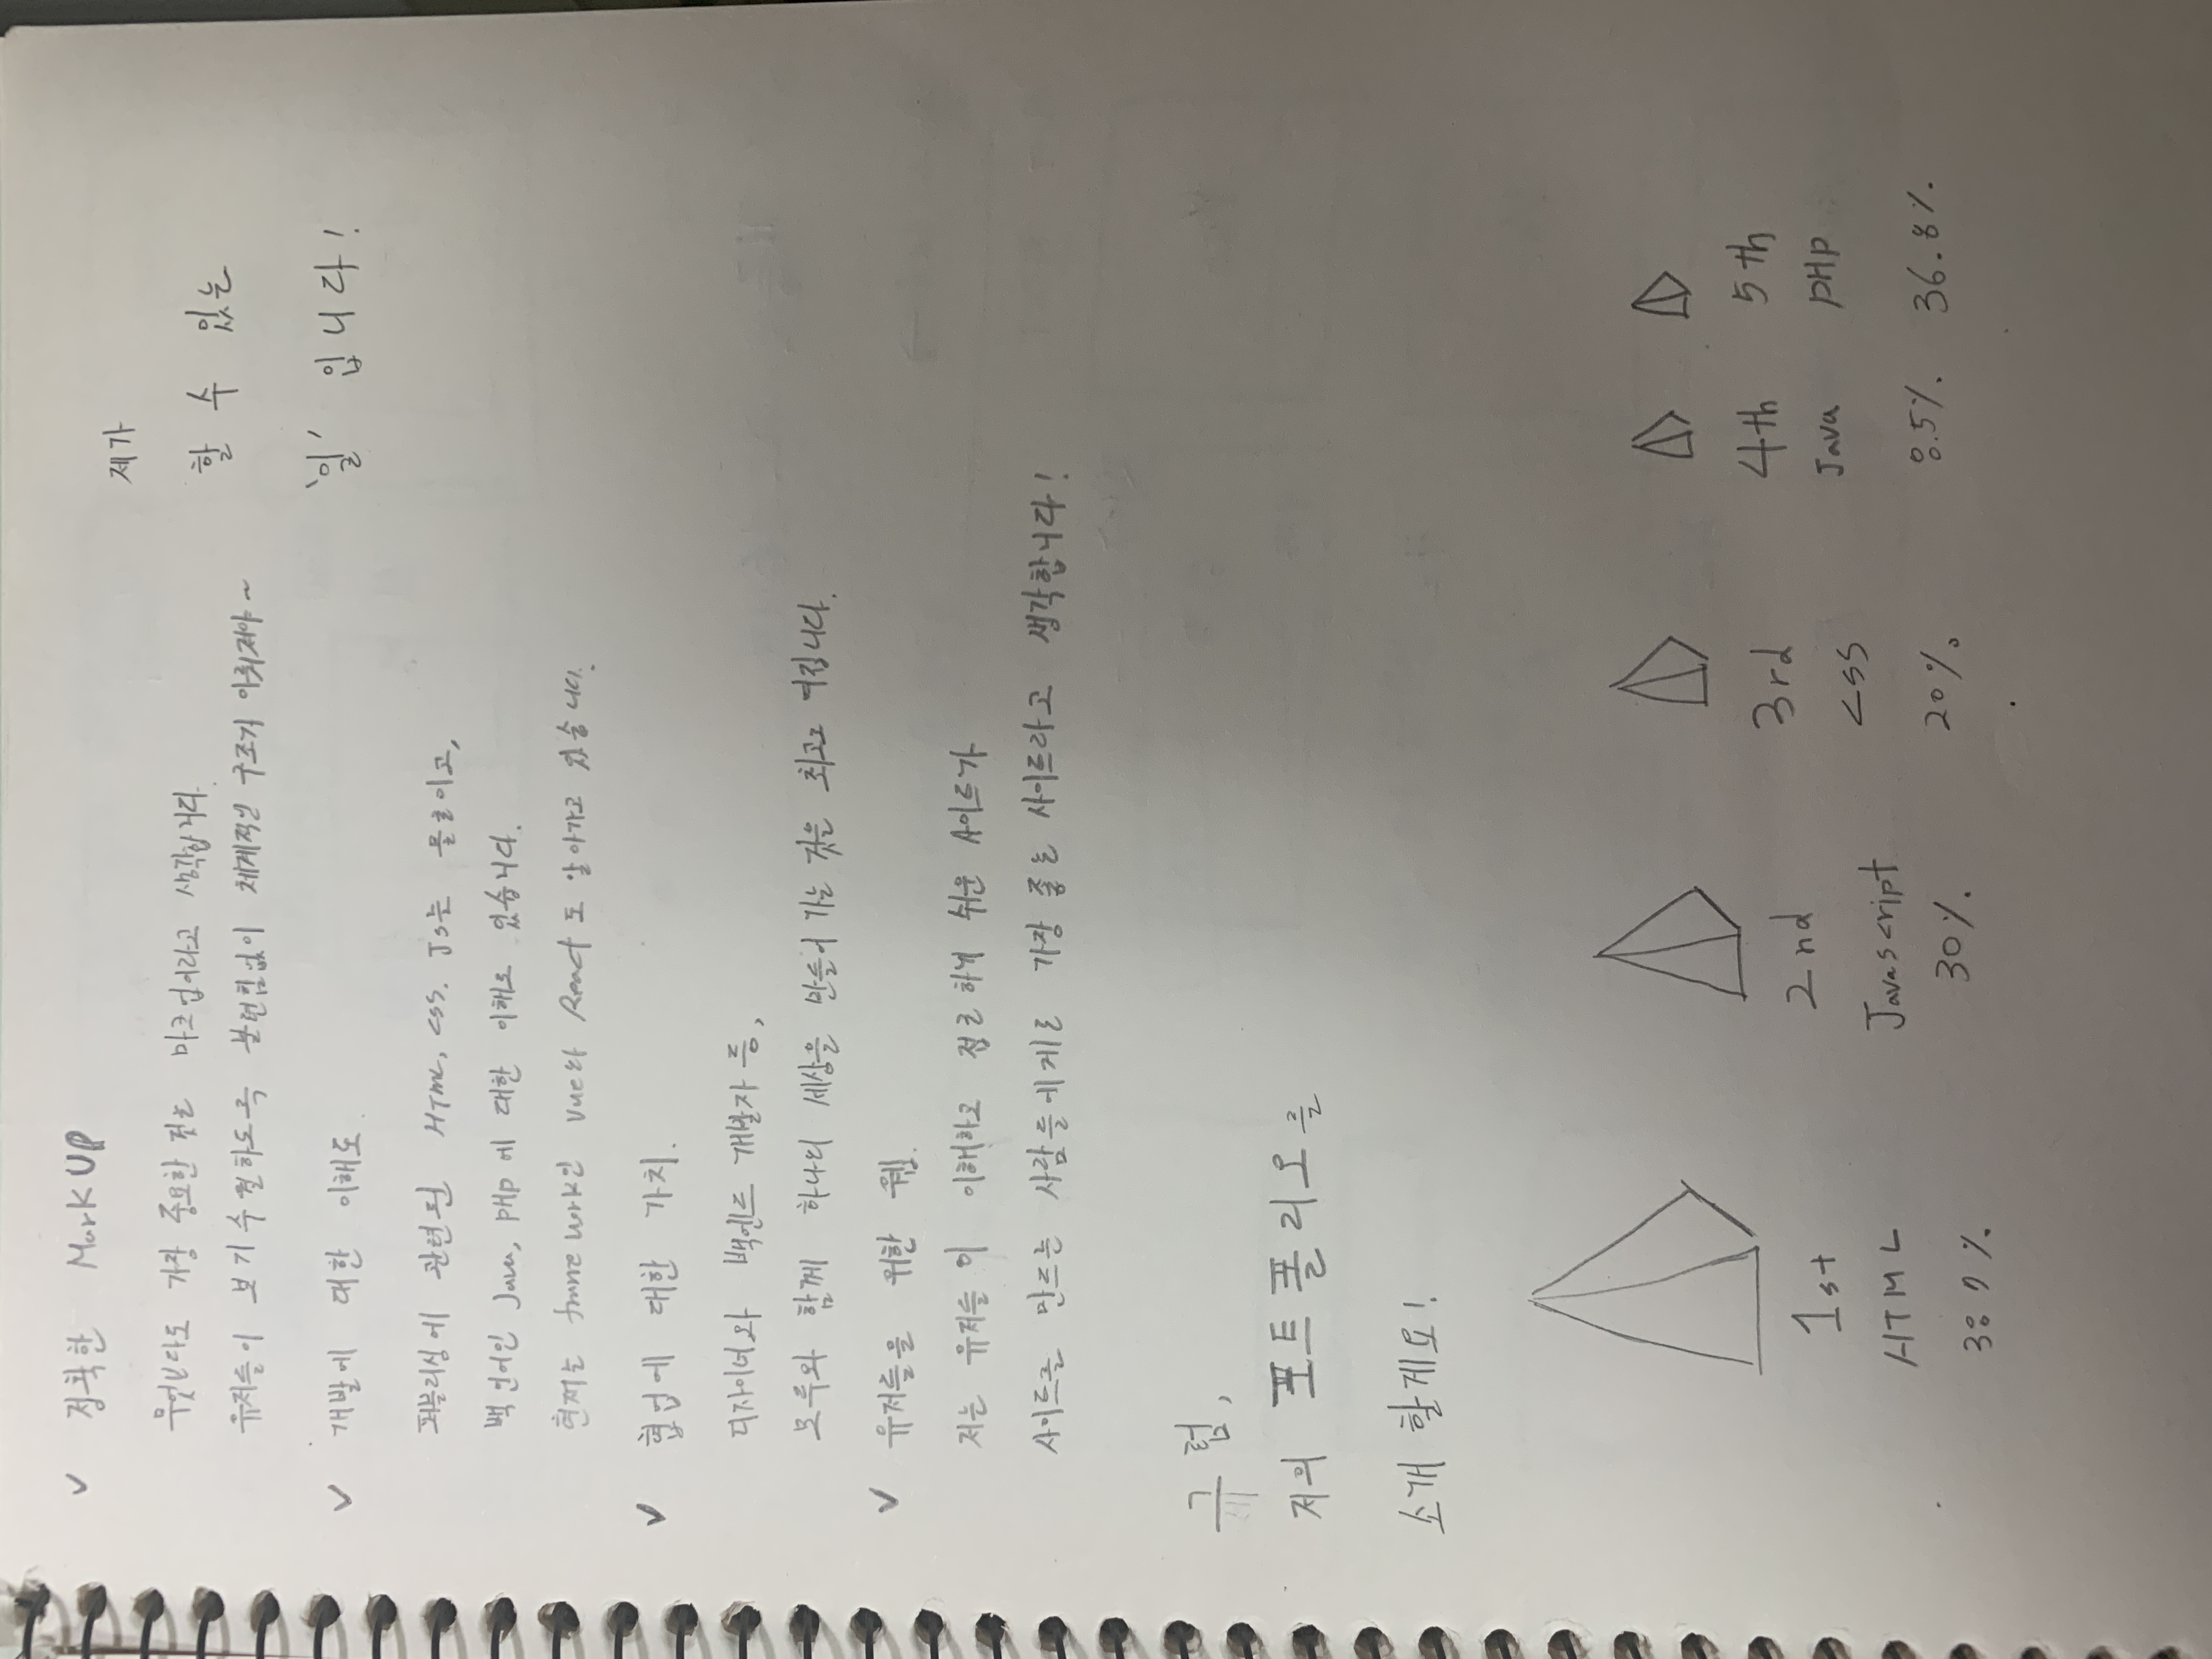 ✓ 정확한 MarkUP
무엇보다도 가장 중요한 것은 마크업이라고 생각합니다.
유저들이 보기 수월하도록 불편함없이 체계적인 구조가 이뤄져야~
제가
할 수 있는
'일' 입니다!
✓ 개발에 대한 이해도.
퍼블리싱에 관련된 HTML, CSS. JS는 물론이고,
백언어인 Java, PHP에 대한 이해도 있습니다.
현재는 frameWork인 Vue와 React도 알아가고 있습니다.
✓ 협업에 대한 가치.
디자이너와 백엔드 개발자 등,
모두와 함께 하나의 세상을 만들어 가는 것을 최고로 여깁니다.
✓ 유저들을 위한 웹.
저는 유저들이 이해하고 접근하기 쉬운 사이트가
사이트를 만드는 사람들에게도 가장 좋은 사이트라고 생각합니다!
그럼,
저의 포트폴리오를
소개 할게요!
1st 2nd 3rd 4th 5th
HTML Javascript CSS Java PHP
30% 20% 8.5% 36.8%